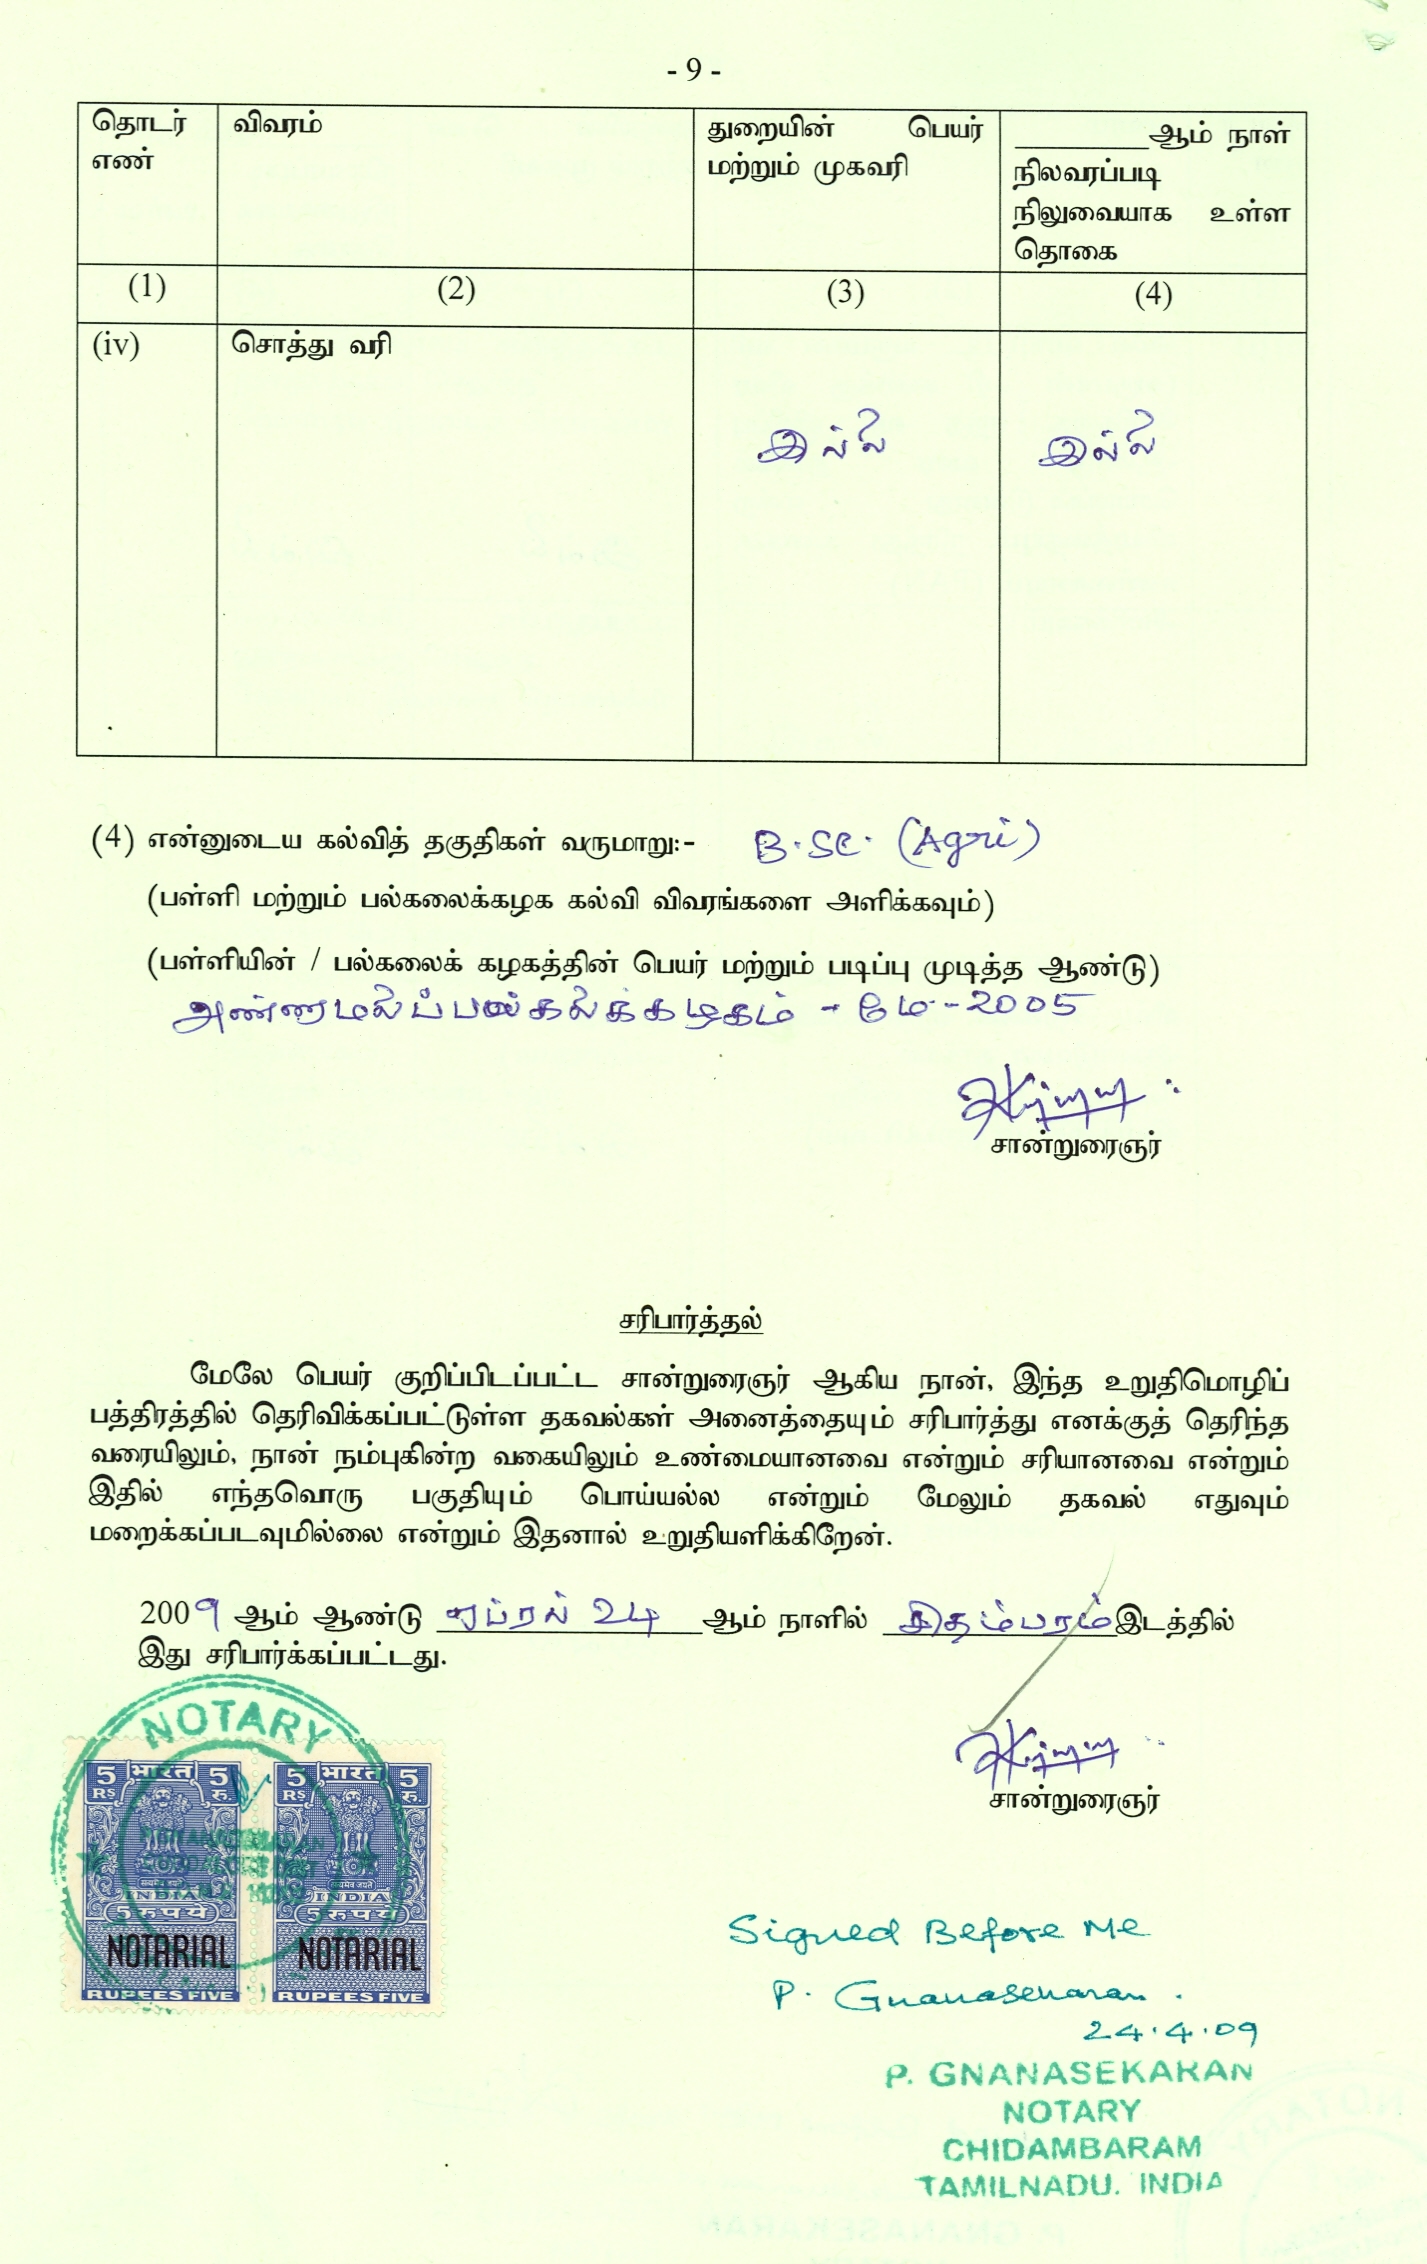 - 9 -
தொடர் எண்
விவரம்
துறையின் பெயர் மற்றும் முகவரி
________ஆம் நாள் நிலவரப்படி நிலுவையாக உள்ள தொகை
(1)
(2)
(3)
(4)
(iv)
சொத்து வரி
இல்லை
இல்லை
(4) என்னுடைய கல்வித் தகுதிகள் வருமாறு:- B.Sc. (Agri)
(பள்ளி மற்றும் பல்கலைக்கழக கல்வி விவரங்களை அளிக்கவும்)
(பள்ளியின் / பல்கலைக் கழகத்தின் பெயர் மற்றும் படிப்பு முடித்த ஆண்டு)
அண்ணாமலைப்பல்கலைக்கழகம் - மே - 2005
சான்றுரைஞர்
சரிபார்த்தல்
மேலே பெயர் குறிப்பிடப்பட்ட சான்றுரைஞர் ஆகிய நான், இந்த உறுதிமொழிப்
பத்திரத்தில் தெரிவிக்கப்பட்டுள்ள தகவல்கள் அனைத்தையும் சரிபார்த்து எனக்குத் தெரிந்த
வரையிலும், நான் நம்புகின்ற வகையிலும் உண்மையானவை என்றும் சரியானவை என்றும்
இதில் எந்தவொரு பகுதியும் பொய்யல்ல என்றும் மேலும் தகவல் எதுவும்
மறைக்கப்படவுமில்லை என்றும் இதனால் உறுதியளிக்கிறேன்.
2009 ஆம் ஆண்டு ஏப்ரல் 24 ஆம் நாளில் சிதம்பரம் இடத்தில்
இது சரிபார்க்கப்பட்டது.
சான்றுரைஞர்
NOTARY
5 भारत 5
RS रु.
INDIA
5 रुपये
NOTARIAL
RUPEES FIVE
5 भारत 5
RS रु.
INDIA
5 रुपये
NOTARIAL
RUPEES FIVE
Signed Before Me
P. Gnanasekaran.
24.4.09
P. GNANASEKARAN
NOTARY
CHIDAMBARAM
TAMILNADU. INDIA